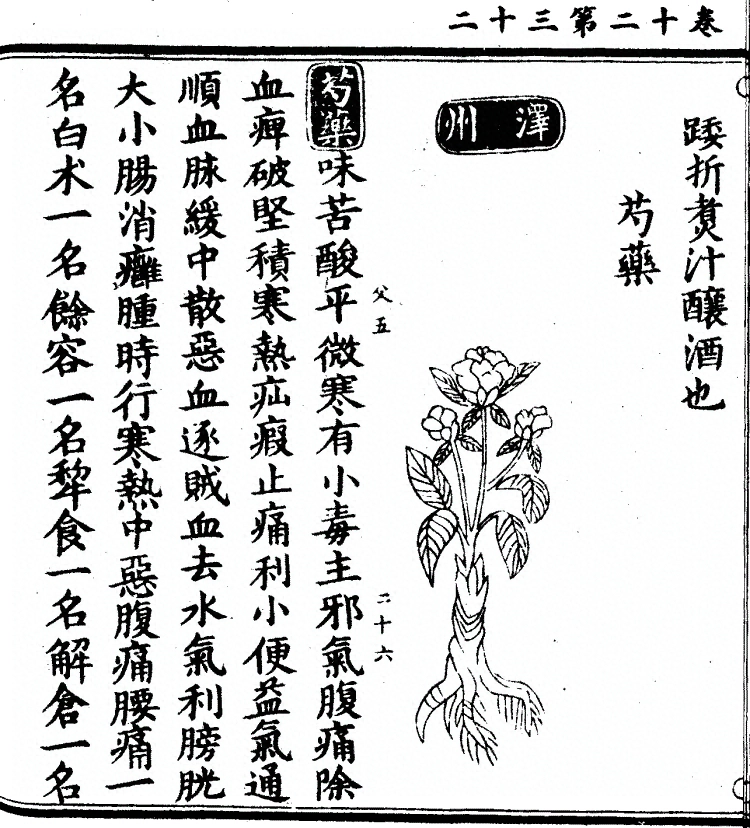 卷十二第三十二
踒折煑汁釀酒也
芍藥
澤州
芍藥味苦酸平微寒有小毒主邪氣腹痛除
父五
二十六
血痺破堅積寒熱疝瘕止痛利小便益氣通
順血脉緩中散惡血逐賊血去水氣利膀胱
大小腸消癰腫時行寒熱中惡腹痛腰痛一
名白术一名餘容一名犂食一名解倉一名